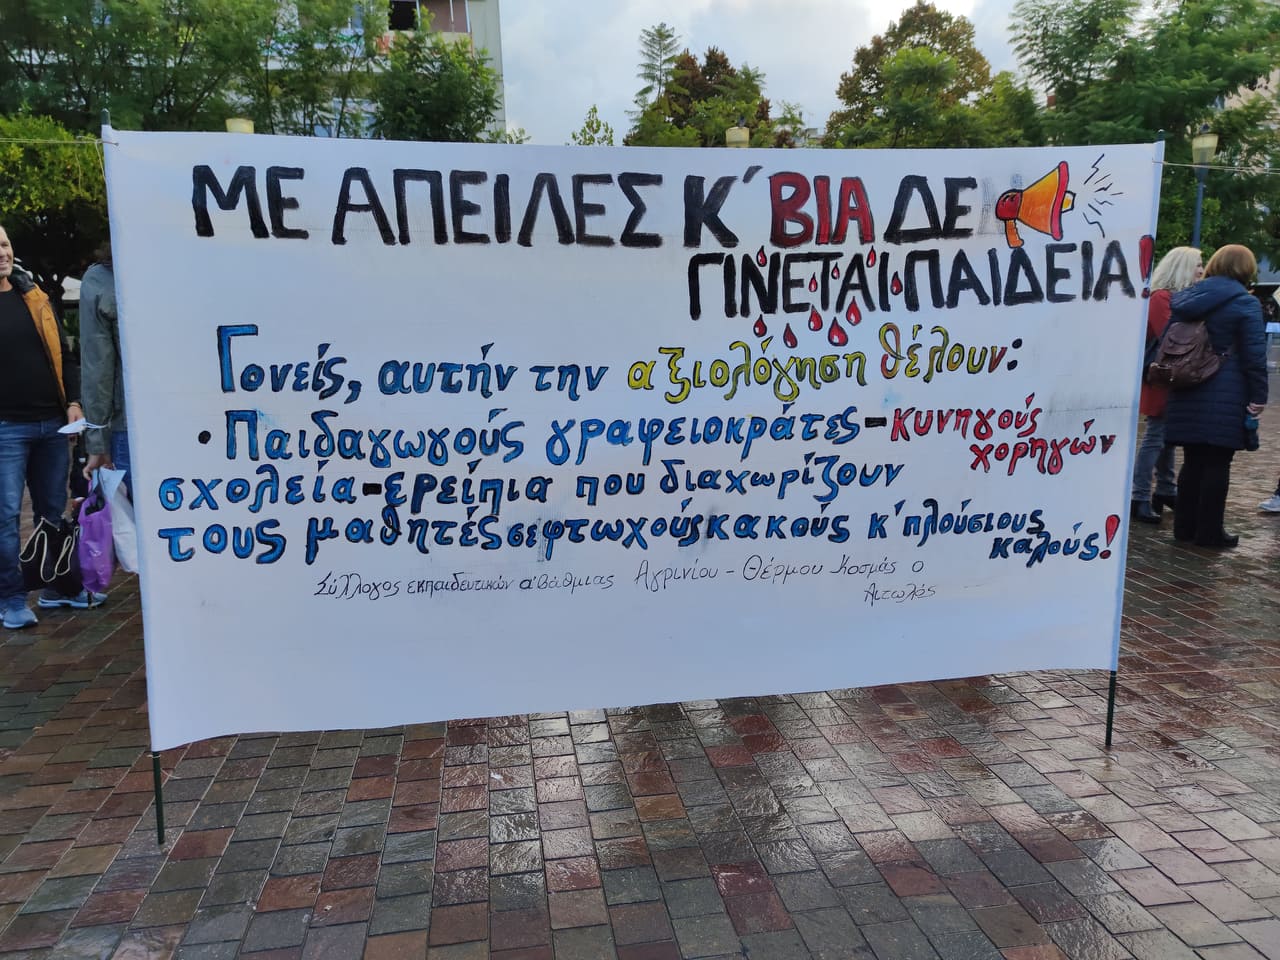 ΜΕ ΑΠΕΙΛΕΣ Κ΄ ΒΙΑ ΔΕ
ΓΙΝΕΤΑΙ ΠΑΙΔΕΙΑ!
Γονείς, αυτήν την αξιολόγηση θέλουν:
• Παιδαγωγούς γραφειοκράτες - κυνηγούς
χορηγών
σχολεία - ερείπια που διαχωρίζουν
τους μαθητές σε φτωχούς κακούς κ΄ πλούσιους
καλούς!
Σύλλογος εκπαιδευτικών α'βάθμιας Αγρινίου - Θέρμου Κοσμάς ο
Αιτωλός